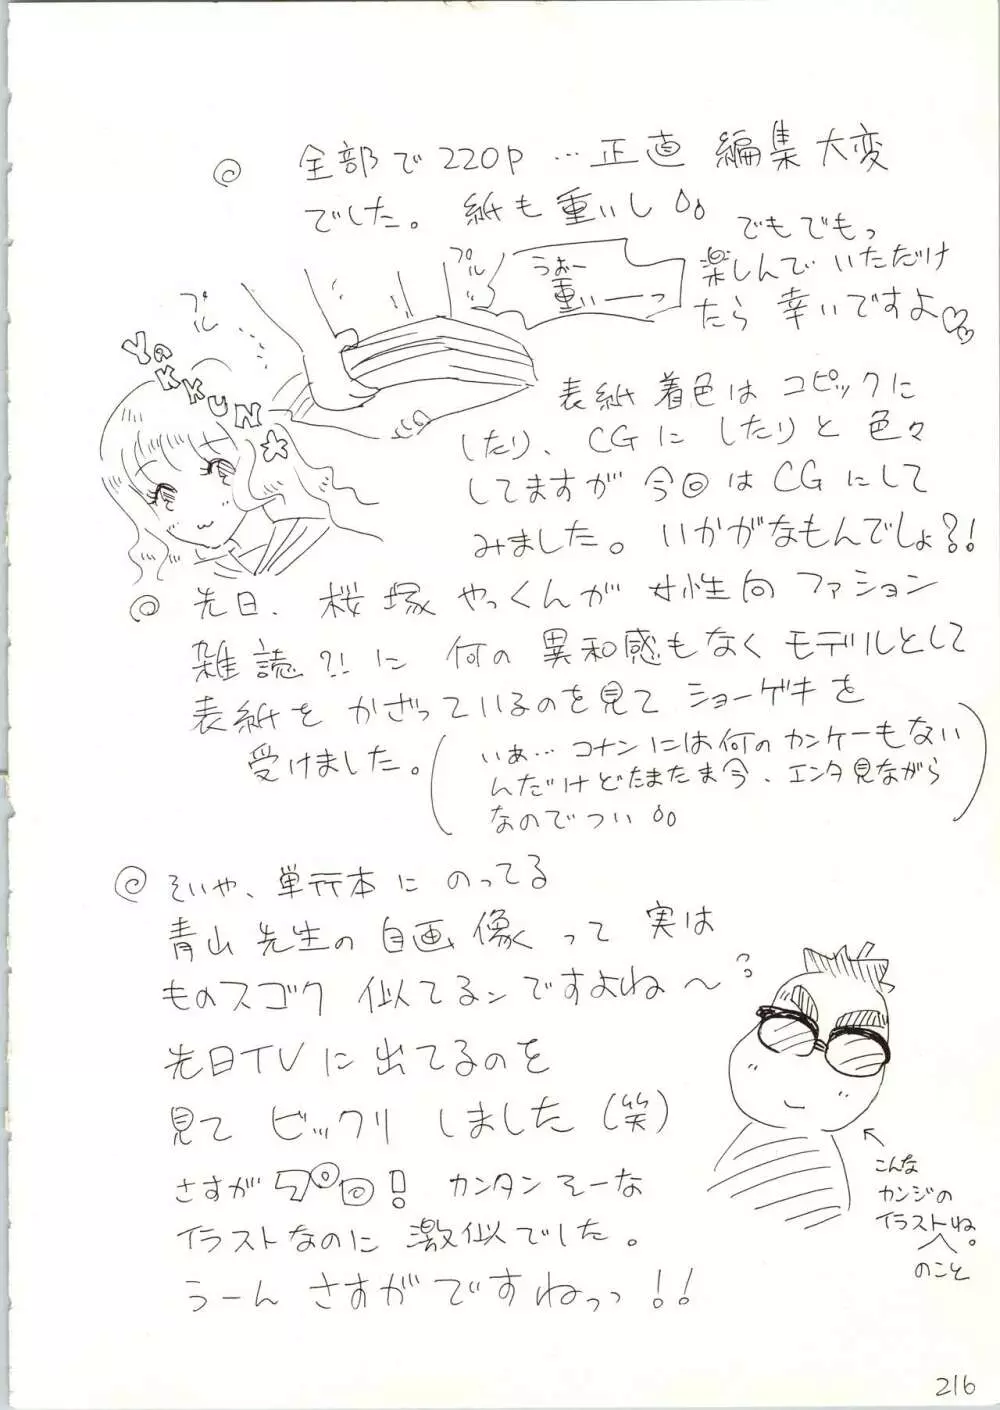 ◎ 全部で220P…正直 編集大変
でした。紙も重いし
でもでもっ
楽しんでいただけ
たら 幸いですよ♡
プル
うおー
重いーっ
プル
YAKKUN☆
表紙着色はコピックに
したり、CGにしたりと色々
してますが今回はCGにして
みました。いかがなもんでしょ?!
◎ 先日、桜塚やっくんが女性向ファション
雑誌?!に何の異和感もなくモデルとして
表紙をかざっているのを見てショーゲキを
受けました。
(いぁ…コナンには何のカンケーもない
んだけどたまたま今、エンタ見ながら
なのでつい)
◎ そいや、単行本にのってる
青山先生の自画像って実は
ものスゴク似てるンですよね〜?
先日TVに出てるのを
見てビックリしました(笑)
さすがプロ!カンタンそーな
イラストなのに激似でした。
うーんさすがですねっっ!!
こんな
カンジの
イラストね。
のこと
216